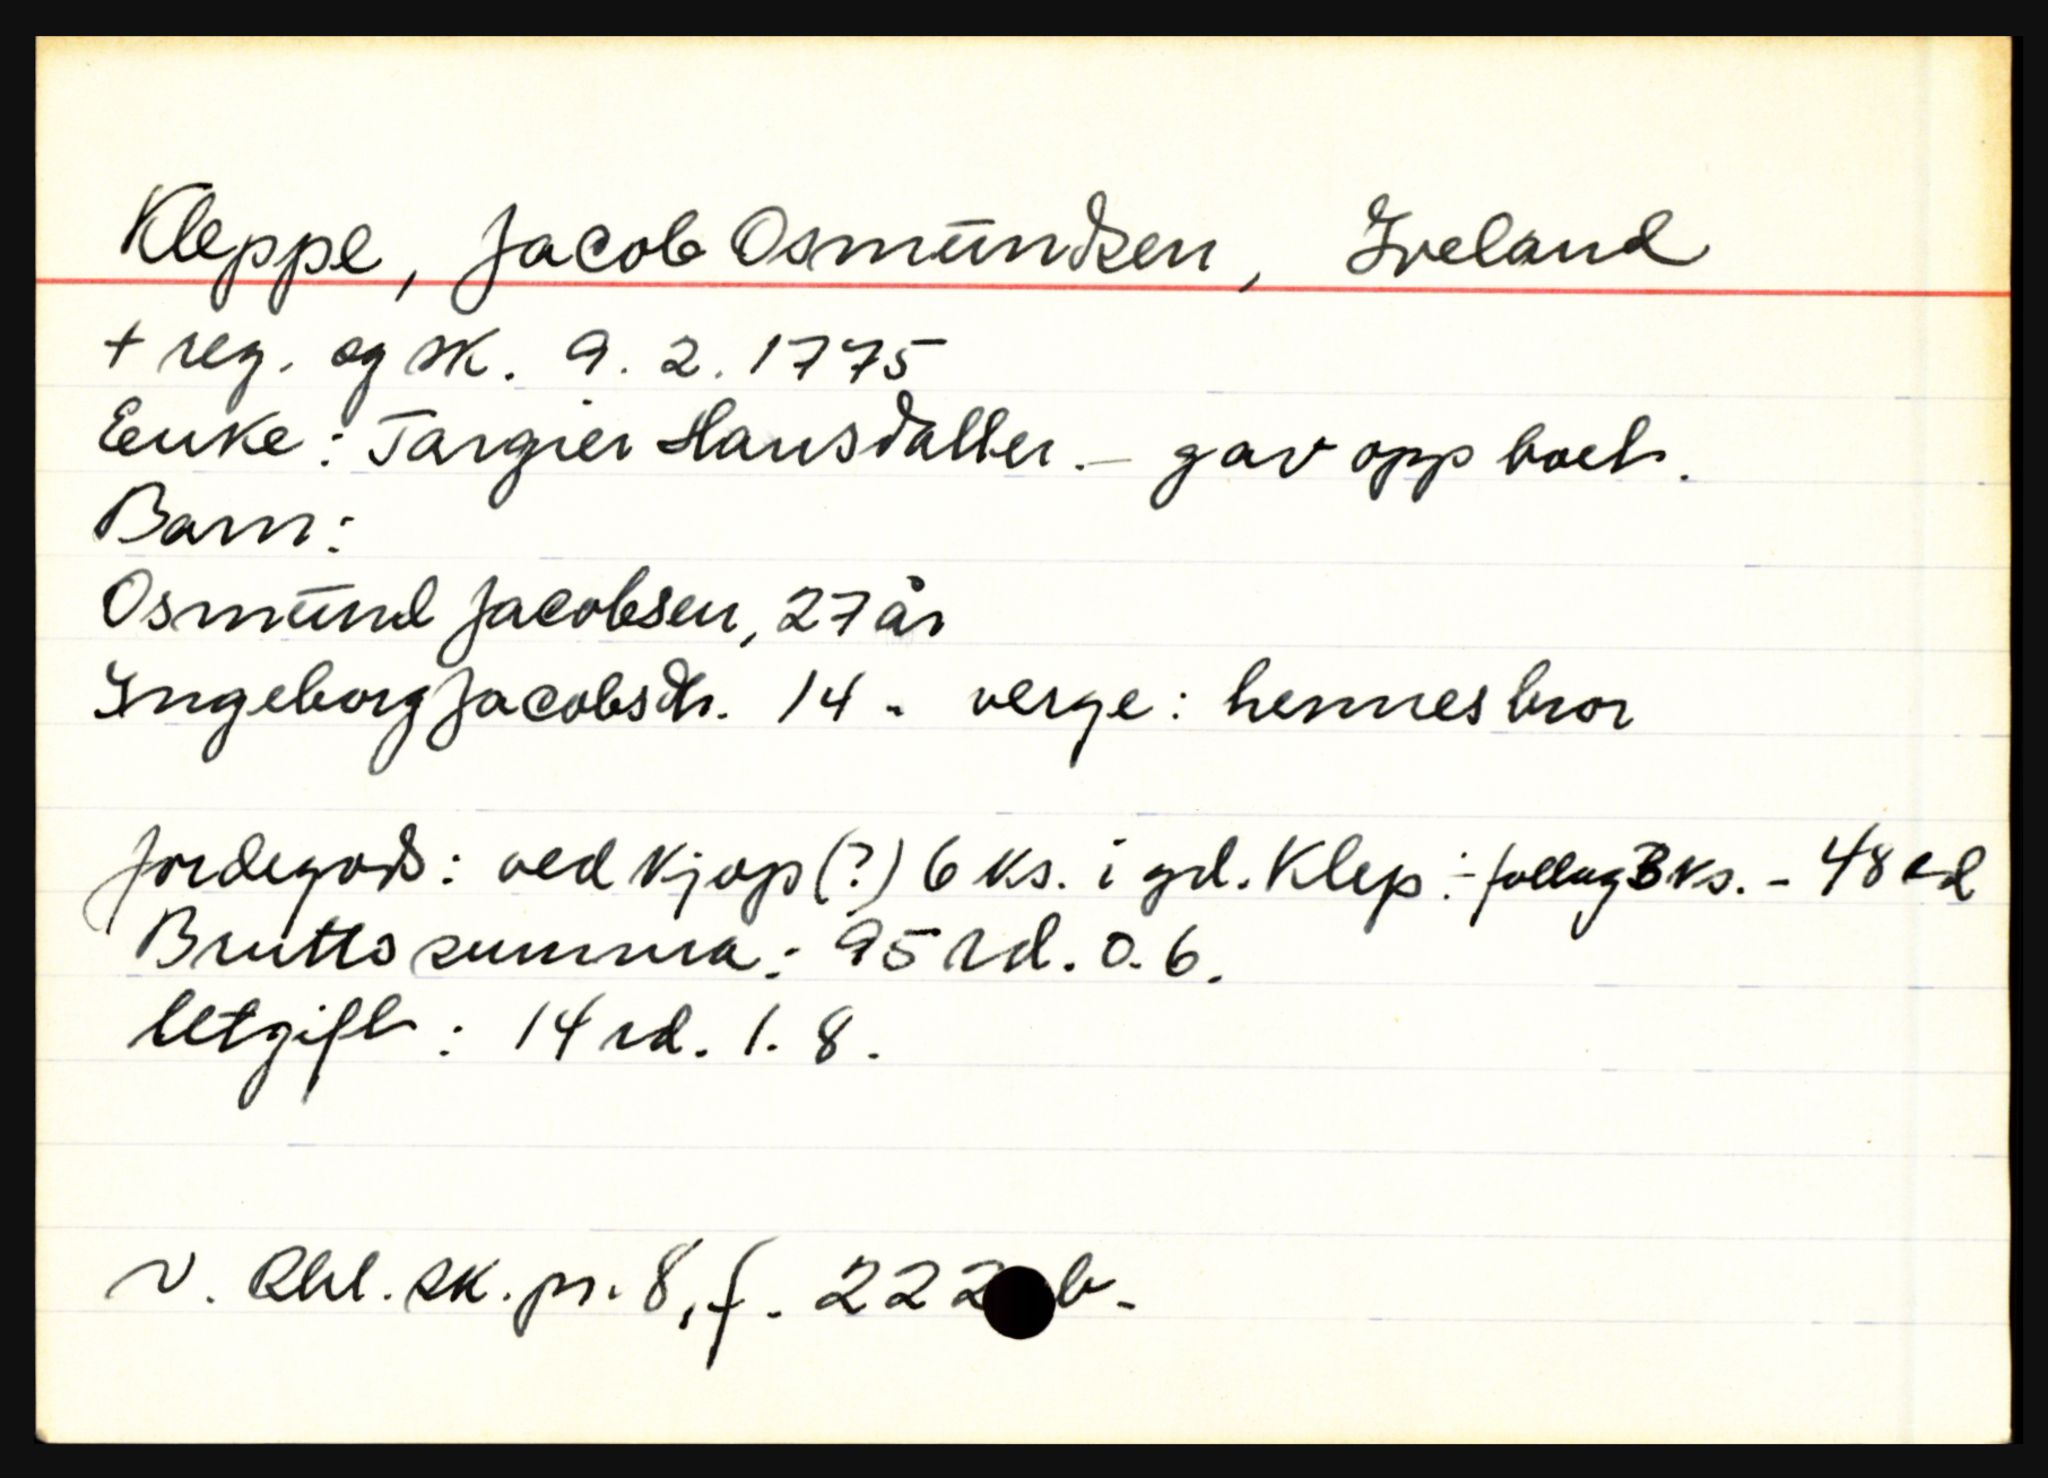 Kleppe, Jacob Osmundsen, Iveland
+ reg. og sk. 9. 2. 1775
Enke: Targier Hansdatter. - gav opp boet.
Barn:
Osmund Jacobsen, 27 år
Ingeborg Jacobsdtr. 14 - verge: hennes bror
Jordegods: ved kjøp (?) 6 ks. i gd. Klep: 3 ks. - 48 rd
Brutto summa: 95 rd. 0. 6.
Utgift: 14 rd. 1. 8.
V. Rbl. sk. pr. 8, f. 222 b.